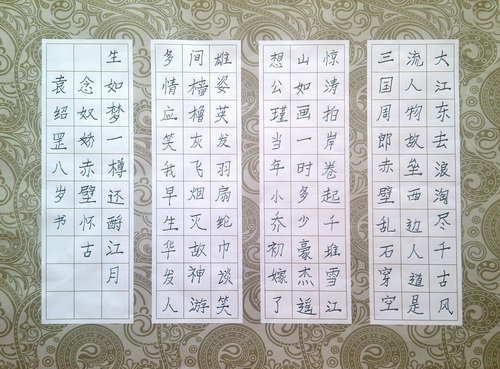 大江东去浪淘尽千古风
流人物故垒西边人道是
三国周郎赤壁乱石穿空
惊涛拍岸卷起千堆雪江
山如画一时多少豪杰遥
想公瑾当年小乔初嫁了
雄姿英发羽扇纶巾谈笑
间樯橹灰飞烟灭故神游
多情应笑我早生华发人
生如梦一樽还酹江月
念奴娇赤壁怀古
袁绍罡八岁书